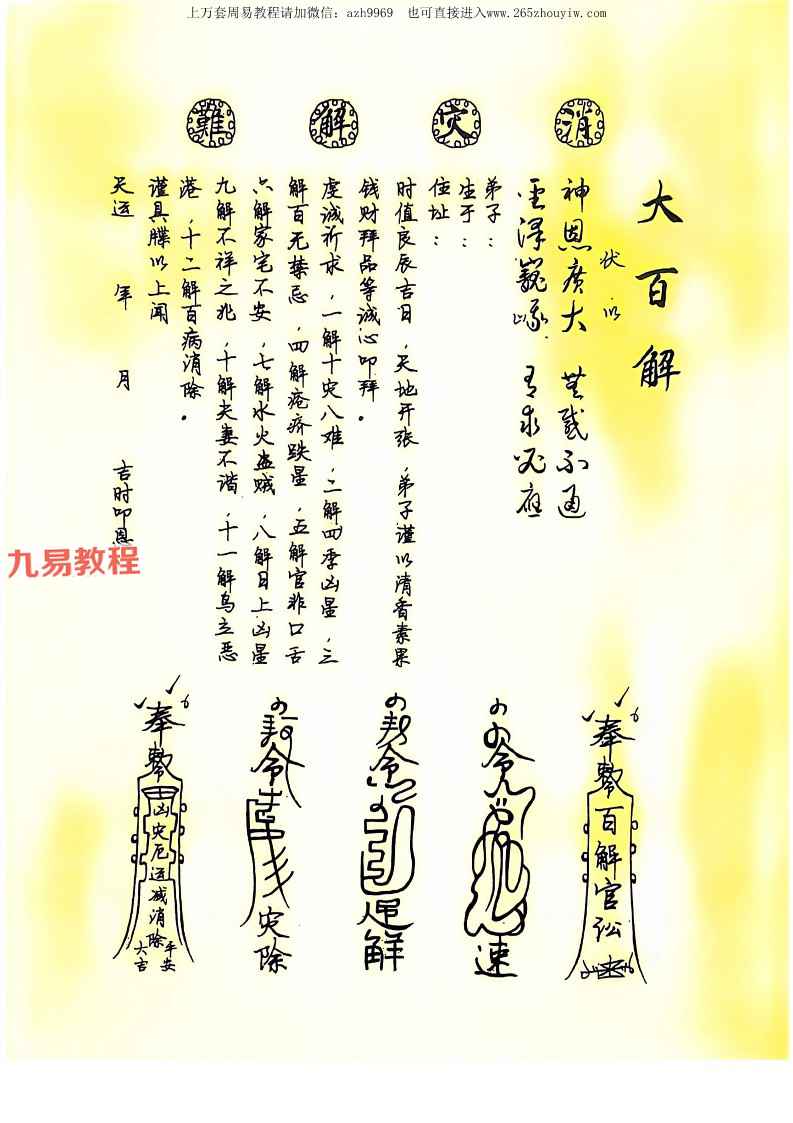 上万套周易教程请加微信: azh9969 也可直接进入www.265zhouyiw.com
消灾解難
大百解
伏以
神恩廣大 無感不通
圣泽巍峨 有求必应
弟子:
生于:
住址:
时值良辰吉日,天地开张,弟子谨以清香素果
钱财拜品等诚心叩拜.
虔诚祈求,一解十灾八难,二解四季凶星,三
解百无禁忌,四解疮疥跌星,五解官非口舌
六解家宅不安,七解水火盗贼,八解日上凶星
九解不祥之兆,十解夫妻不谐,十一解鸟立恶
港,十二解百病消除.
谨具牒以上闻
天运 年 月 吉时叩恩
九易教程
奉敕百解官讼
令
速
令
解
令
灾除
奉敕
凶灾厄运减消除
平安
大吉